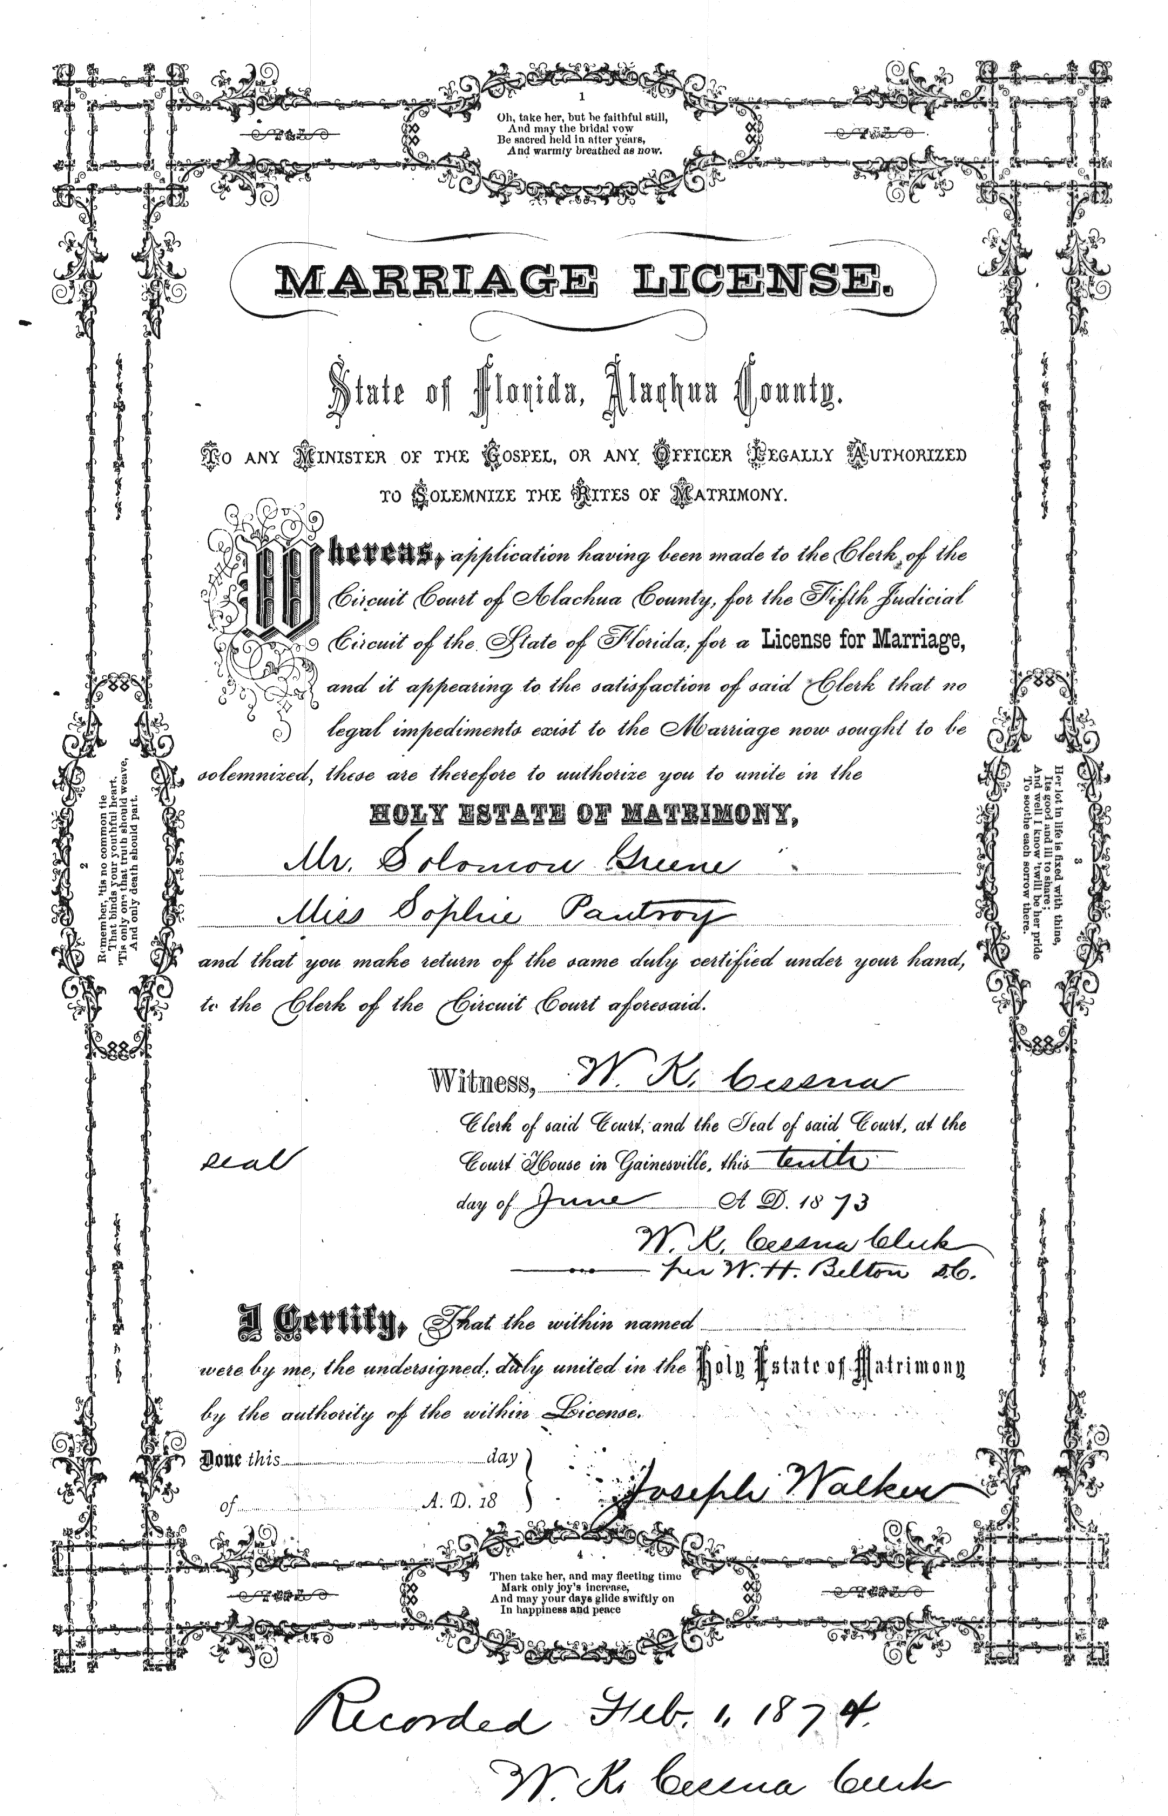 1
Oh, take her, but be faithful still,
And may the bridal vow
Be sacred held in after years,
And warmly breathed as now.
MARRIAGE LICENSE.
State of Florida, Alachua County.
TO ANY MINISTER OF THE GOSPEL, OR ANY OFFICER LEGALLY AUTHORIZED
TO SOLEMNIZE THE RITES OF MATRIMONY.
Whereas, application having been made to the Clerk of the
Circuit Court of Alachua County, for the Fifth Judicial
Circuit of the State of Florida, for a License for Marriage,
and it appearing to the satisfaction of said Clerk that no
legal impediments exist to the Marriage now sought to be
solemnized, these are therefore to authorize you to unite in the
HOLY ESTATE OF MATRIMONY,
Mr. Solomon Greene
Miss Sophie Pautroy
and that you make return of the same duly certified under your hand,
to the Clerk of the Circuit Court aforesaid.
2
Remember, 'tis no common tie
That binds your youthful heart,
'Tis only one that truth should weave,
And only death should part.
3
Her lot in life is fixed with thine,
Its good and ill to share;
And well I know 'twill be her pride
To soothe each sorrow there.
Witness, W. K. Cessna
Clerk of said Court, and the Seal of said Court, at the
seal
Court House in Gainesville, this tenth
day of June A. D. 1873
W. K. Cessna Clerk
per W. H. Belton D.C.
I Certify, That the within named
were by me, the undersigned, duly united in the Holy Estate of Matrimony
by the authority of the within License.
Done this day
of A. D. 18
Joseph Walker
4
Then take her, and may fleeting time
Mark only joy's increase,
And may your days glide swiftly on
In happiness and peace
Recorded Feb. 1, 1874.
W. K. Cessna Clerk